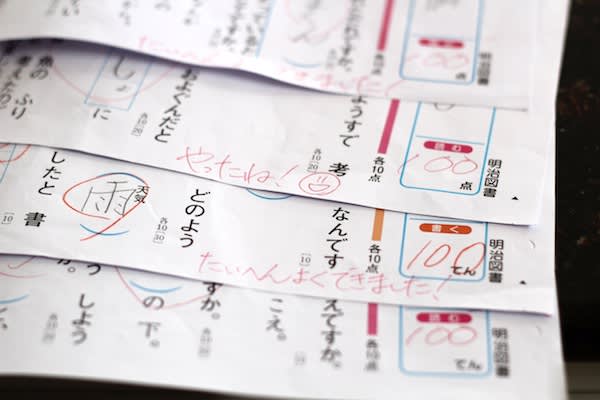 明治図書
読む
100
点
各10点
たいへんよくできました!
明治図書
読む
100
点
各10点
ようすで 考
各10(20)
およぐんだと
各10(20)
しょ
に
魚の ふり
考えたの
やったね!
明治図書
書く
100
てん
各10点
なんです
(10)
どのよう
各10(30)
天気
雨
したと 書
(10)
たいへんよくできました!
明治図書
読む
100
てん
各10点
えですか。
こえ。
すか。
の 下。
しよう